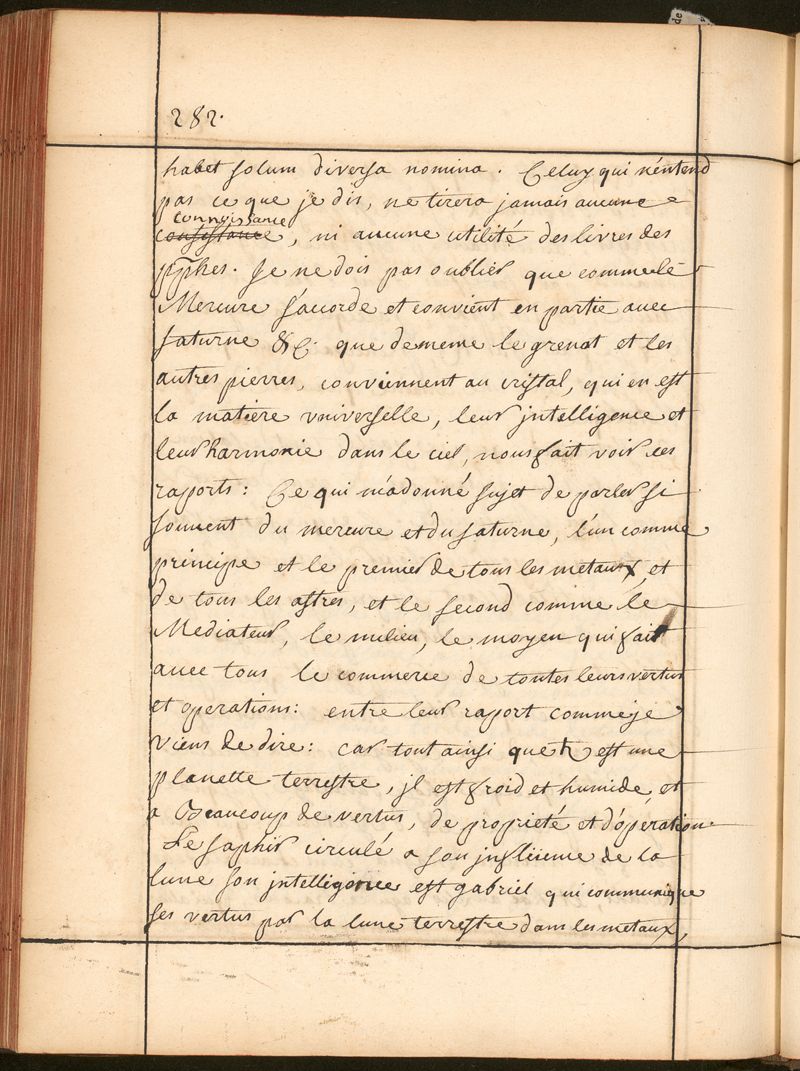 282.
habet solum diversa nomina. Celuy qui n'entend
pas ce que je dis, ne tirera jamais aucune
connoissance
consistance, ni aucune utilité des livres des
pphes. Je ne dois pas oublier que comme le
Mercure s'acorde et convient en partie avec
saturne &c. que de meme le grenat et les
autres pierres, conviennent au cristal, qui en est
la matiere vniverselle, leur jntelligence et
leur harmonie dans le ciel, nous fait voir ces
raports: Ce qui m'a donné sujet de parler si
souuent du mercure et du saturne, l'un comme
principe et le premier de tous les metaux, et
de tous les astres, et le second comme le
Mediateur, le milieu, le moyen qui fait
auec tous le commerce de toutes leurs vertus
et operations: entre leur raport comme je
viens de dire: car tout ainsi que ♄ est une
planette terrestre, jl est froid et humide, et
a Beaucoup de vertus, de propriété et d'opération
Le saphir circulé a son jnflüence de la
lune son jntelligence est gabriel qui communique
ses vertus par la lune terrestre dans les metaux,
de